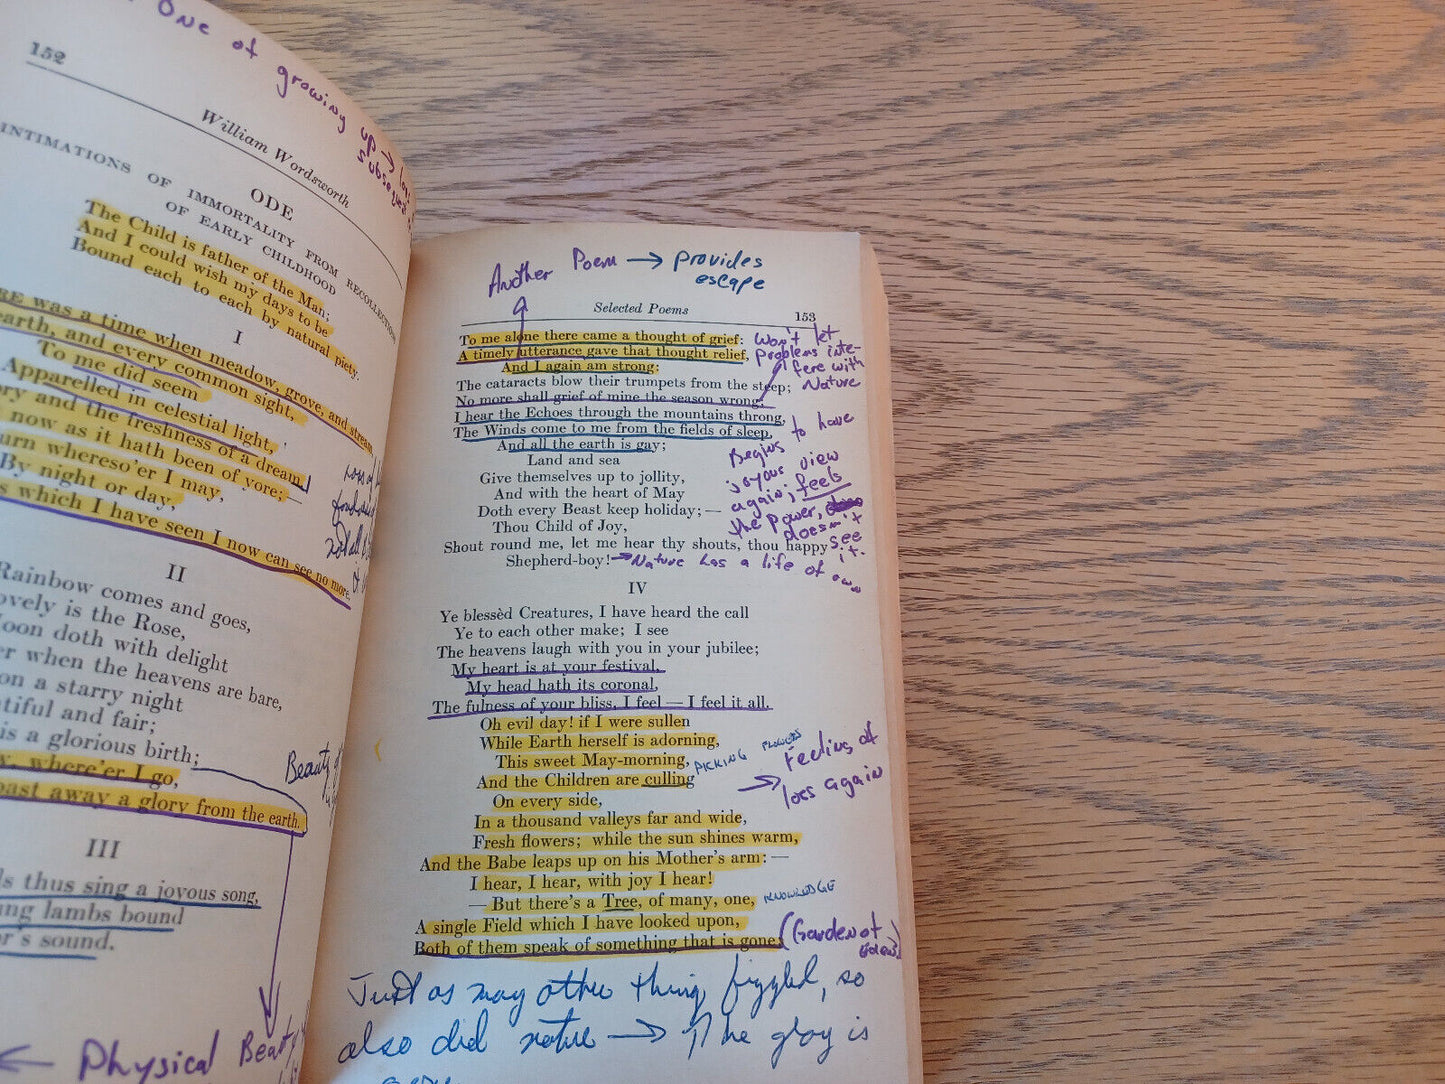 One of
growing up →
subsequent
152
William Wordsworth
ODE
INTIMATIONS OF IMMORTALITY FROM RECOLLECTIONS
OF EARLY CHILDHOOD
The Child is father of the Man;
And I could wish my days to be
Bound each to each by natural piety.
I
was a time when meadow, grove, and stream,
earth, and every common sight,
To me did seem
Apparelled in celestial light,
and the freshness of a dream.
now as it hath been of yore;—
whereso'er I may,
By night or day,
which I have seen I now can see no more.
II
Rainbow comes and goes,
is the Rose,
doth with delight
when the heavens are bare,
on a starry night
and fair;
is a glorious birth;
where'er I go,
past away a glory from the earth.
Beauty of
III
thus sing a joyous song,
lambs bound
sound.
← Physical Beauty
Another Poem → provides
escape
Selected Poems
153
To me alone there came a thought of grief:
A timely utterance gave that thought relief,
And I again am strong:
The cataracts blow their trumpets from the steep;
No more shall grief of mine the season wrong;
I hear the Echoes through the mountains throng,
The Winds come to me from the fields of sleep,
And all the earth is gay;
Land and sea
Give themselves up to jollity,
And with the heart of May
Doth every Beast keep holiday;—
Thou Child of Joy,
Shout round me, let me hear thy shouts, thou happy
Shepherd-boy!
Won't let
problems inte-
fere with
Nature
Begins to have
joyous view
again; feels
the power,
doesn't
see
it.
→ Nature has a life of own
IV
Ye blessèd Creatures, I have heard the call
Ye to each other make; I see
The heavens laugh with you in your jubilee;
My heart is at your festival,
My head hath its coronal,
The fulness of your bliss, I feel — I feel it all.
Oh evil day! if I were sullen
While Earth herself is adorning,
This sweet May-morning,
And the Children are culling
PICKING FLOWERS
On every side,
In a thousand valleys far and wide,
Fresh flowers; while the sun shines warm,
And the Babe leaps up on his Mother's arm:—
I hear, I hear, with joy I hear!
— But there's a Tree, of many, one,
KNOWLEDGE
A single Field which I have looked upon,
Both of them speak of something that is gone:
→ Feeling of
loss again
(Garden of
Eden)
Just as may other thing fizzled, so
also did nature → The glory is